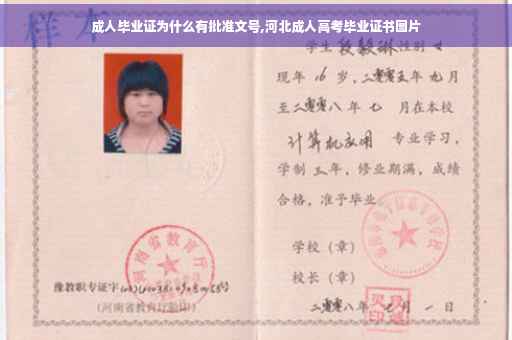 成人毕业证为什么有批准文号,河北成人高考毕业证书图片
样本
学生段毅琳性别女
现年16岁,二零零五年九月
至二零零八年七月在本校
计算机应用 专业学习,
学制三年,修业期满,成绩
合格,准予毕业
学校(章)
校长(章)
二零零八年 月一日
河南省教育厅
豫教职专证字
(河南省教育厅验印)